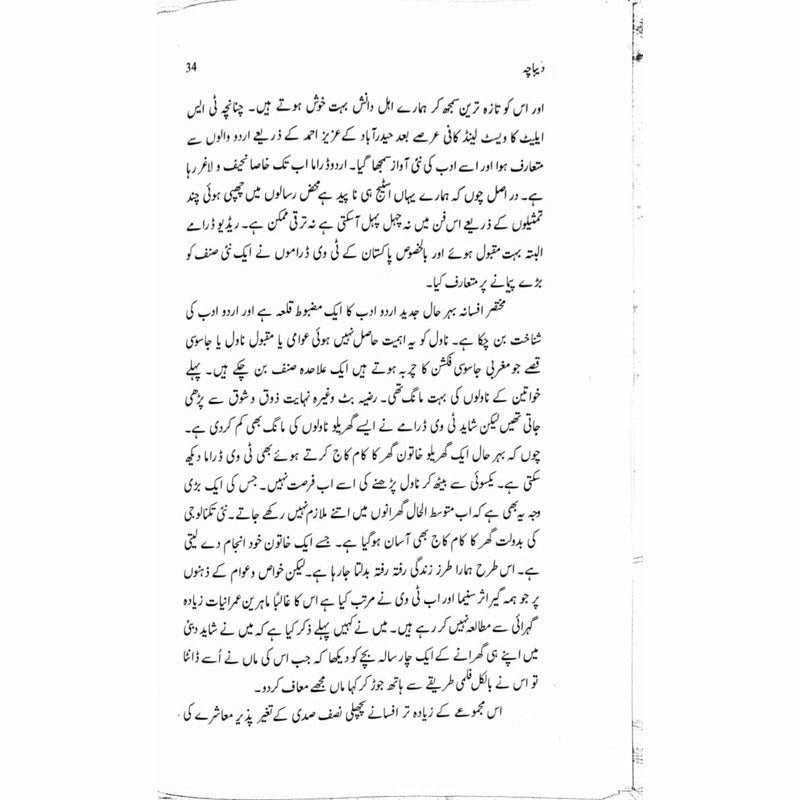 دیباچہ 34
اور اس کو تازہ ترین سمجھ کر ہمارے اہل دانش بہت خوش ہوتے ہیں۔ چنانچہ ٹی ایس
ایلیٹ کا ویسٹ لینڈ کافی عرصے بعد حیدرآباد کے عزیز احمد کے ذریعے اردو والوں سے
متعارف ہوا اور اسے ادب کی نئی آواز سمجھا گیا۔ اردو ڈراما اب تک خاصا نحیف و لاغر رہا
ہے۔ در اصل چوں کہ ہمارے یہاں اسٹیج ہی نا پید ہے محض رسالوں میں چھپی ہوئی چند
تمثیلوں کے ذریعے اس فن میں نہ چہل پہل آسکتی ہے نہ ترقی ممکن ہے۔ ریڈیو ڈرامے
البتہ بہت مقبول ہوئے اور بالخصوص پاکستان کے ٹی وی ڈراموں نے ایک نئی صنف کو
بڑے پیمانے پر متعارف کیا۔
مختصر افسانہ بہر حال جدید اردو ادب کا ایک مضبوط قلعہ ہے اور اردو ادب کی
شناخت بن چکا ہے۔ ناول کو یہ اہمیت حاصل نہیں ہوئی عوامی یا مقبول ناول یا جاسوسی
قصے جو مغربی جاسوسی فکشن کا چربہ ہوتے ہیں ایک علاحدہ صنف بن چکے ہیں۔ پہلے
خواتین کے ناولوں کی بہت مانگ تھی۔ رضیہ بٹ وغیرہ نہایت ذوق و شوق سے پڑھی
جاتی تھیں لیکن شاید ٹی وی ڈرامے نے ایسے گھریلو ناولوں کی مانگ بھی کم کردی ہے۔
چوں کہ بہر حال ایک گھریلو خاتون گھر کا کام کاج کرتے ہوئے بھی ٹی وی ڈراما دیکھ
سکتی ہے۔ یکسوئی سے بیٹھ کر ناول پڑھنے کی اسے اب فرصت نہیں۔ جس کی ایک بڑی
وجہ یہ بھی ہے کہ اب متوسط الحال گھرانوں میں اتنے ملازم نہیں رکھے جاتے۔ نئی تکنالوجی
کی بدولت گھر کا کام کاج بھی آسان ہوگیا ہے۔ جسے ایک خاتون خود انجام دے لیتی
ہے۔ اس طرح ہمارا طرز زندگی رفتہ رفتہ بدلتا جارہا ہے۔ لیکن خواص و عوام کے ذہنوں
پر جو ہمہ گیر اثر سنیما اور اب ٹی وی نے مرتب کیا ہے اس کا غالباً ماہرین عمرانیات زیادہ
گہرائی سے مطالعہ نہیں کر رہے ہیں۔ میں نے کہیں پہلے ذکر کیا ہے کہ میں نے شاید دبئی
میں اپنے ہی گھرانے کے ایک چار سالہ بچے کو دیکھا کہ جب اس کی ماں نے اُسے ڈانٹا
تو اس نے بالکل فلمی طریقے سے ہاتھ جوڑ کر کہا ماں مجھے معاف کردو۔
اس مجموعے کے زیادہ تر افسانے پچھلی نصف صدی کے تغیر پذیر معاشرے کی